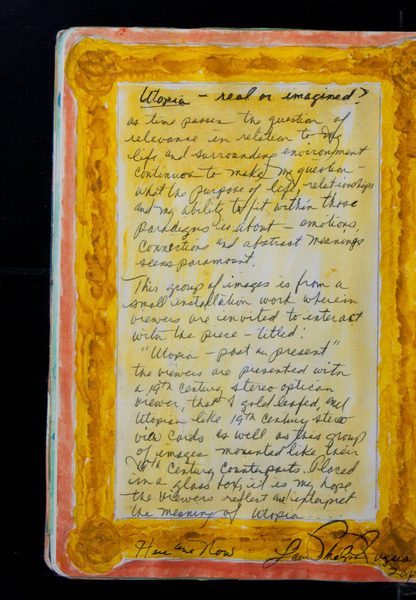 Utopia - real or imagined?
as time passes the question of
relevance in relation to my
life and surrounding environment
continues to make me question -
what the purpose of life, relationships
and my ability to fit within those
paradigms is about - emotions,
connections and abstract meanings
seems paramount.
This group of images is from a
small installation work wherein
viewers are invited to interact
with the piece - titled:
"Utopia - past or present"
the viewers are presented with
a 19th century stereo optican
viewer, that I gold leafed, and
Utopian like 19th century stereo
view cards as well as this group
of images mounted like their
19th century counterparts. Placed
in a glass box, it is my hope
the viewers reflect and interpret
the meaning of Utopia...
Here and Now